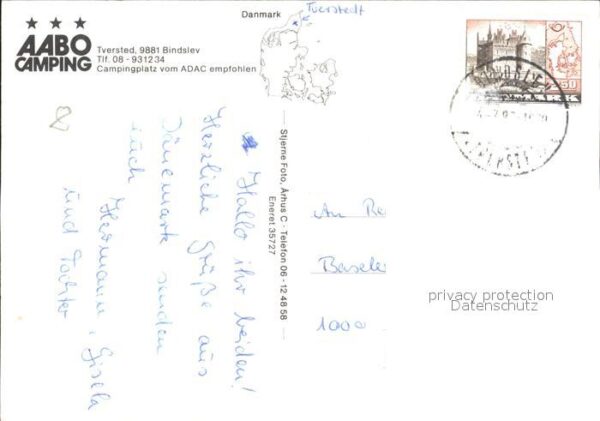 Danmark
Tverstedt
AABO
CAMPING
Tversted, 9881 Bindslev
Tlf. 08 - 931234
Campingplatz vom ADAC empfohlen
Stjerne Foto, Århus C - Telefon 06 - 12 48 58
Eneret 35727
Hallo ihr beiden!
Herzliche Grüße aus
Dänemark senden
Euch
Hermann, Gisela
und Tochter
An Re
Basele
1000
50
privacy protection
Datenschutz